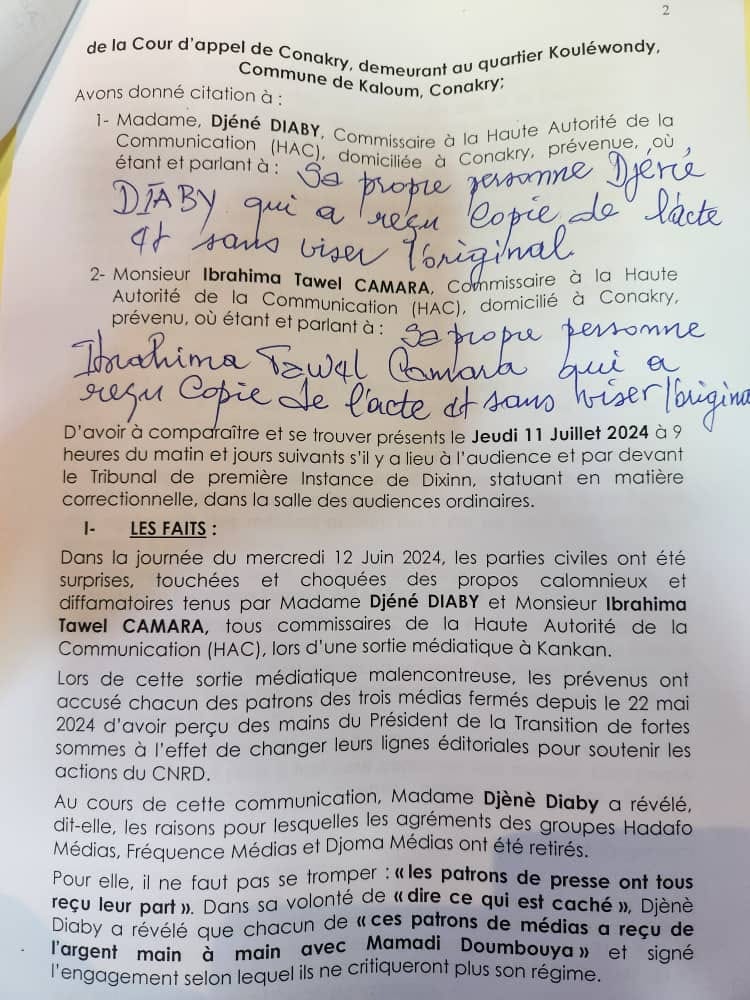 2
de la Cour d'appel de Conakry, demeurant au quartier Kouléwondy,
Commune de Kaloum, Conakry;
Avons donné citation à :
1- Madame, Djéné DIABY, Commissaire à la Haute Autorité de la
Communication (HAC), domiciliée à Conakry, prévenue, où
étant et parlant à : Sa propre personne Djéné
DIABY qui a reçu Copie de l'acte
et sans viser l'original
2- Monsieur Ibrahima Tawel CAMARA, Commissaire à la Haute
Autorité de la Communication (HAC), domicilié à Conakry,
prévenu, où étant et parlant à : Sa propre personne
Ibrahima Tawel Camara qui a
reçu Copie de l'acte et sans viser l'origina
D'avoir à comparaître et se trouver présents le Jeudi 11 Juillet 2024 à 9
heures du matin et jours suivants s'il y a lieu à l'audience et par devant
le Tribunal de première Instance de Dixinn, statuant en matière
correctionnelle, dans la salle des audiences ordinaires.
I- LES FAITS :
Dans la journée du mercredi 12 Juin 2024, les parties civiles ont été
surprises, touchées et choquées des propos calomnieux et
diffamatoires tenus par Madame Djéné DIABY et Monsieur Ibrahima
Tawel CAMARA, tous commissaires de la Haute Autorité de la
Communication (HAC), lors d'une sortie médiatique à Kankan.
Lors de cette sortie médiatique malencontreuse, les prévenus ont
accusé chacun des patrons des trois médias fermés depuis le 22 mai
2024 d'avoir perçu des mains du Président de la Transition de fortes
sommes à l'effet de changer leurs lignes éditoriales pour soutenir les
actions du CNRD.
Au cours de cette communication, Madame Djènè Diaby a révélé,
dit-elle, les raisons pour lesquelles les agréments des groupes Hadafo
Médias, Fréquence Médias et Djoma Médias ont été retirés.
Pour elle, il ne faut pas se tromper : « les patrons de presse ont tous
reçu leur part ». Dans sa volonté de « dire ce qui est caché », Djènè
Diaby a révélé que chacun de « ces patrons de médias a reçu de
l'argent main à main avec Mamadi Doumbouya » et signé
l'engagement selon lequel ils ne critiqueront plus son régime.